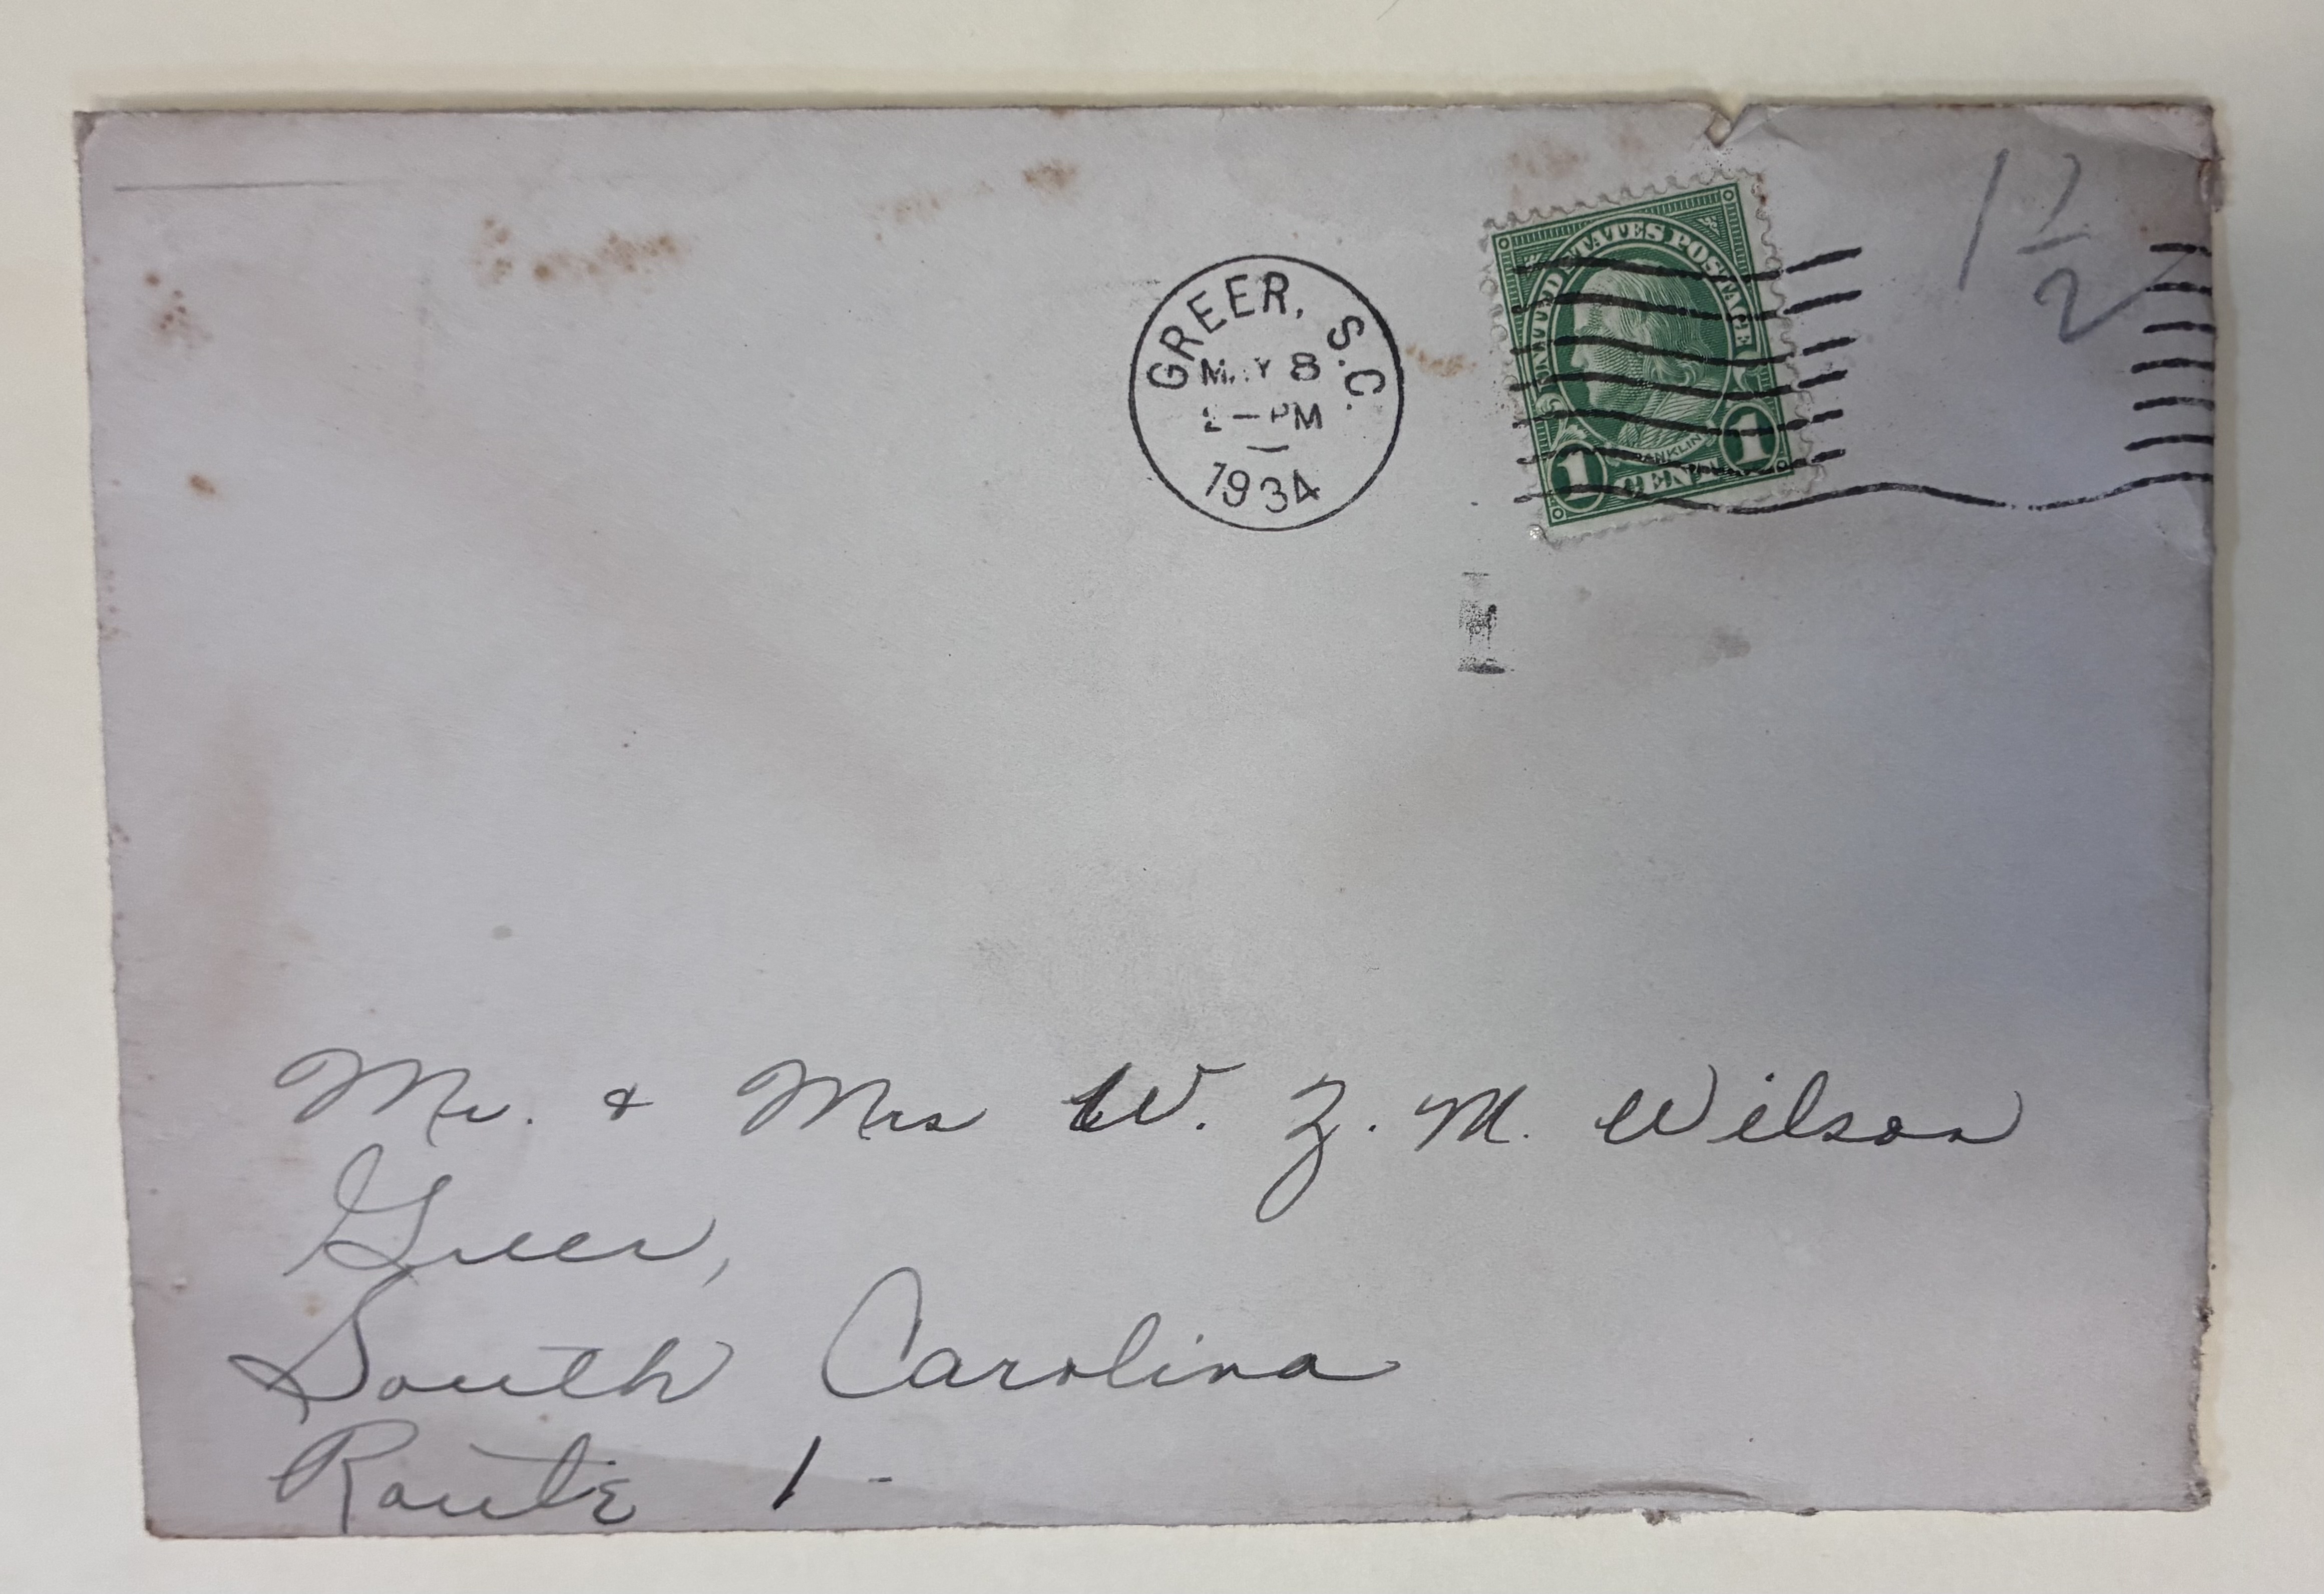 1 1/2
UNITED STATES POSTAGE
FRANKLIN
1 CENT 1
GREER, S.C.
MAY 8
PM
1934
Mr. & Mrs W. Z. M. Wilson
Greer,
South Carolina
Route 1-